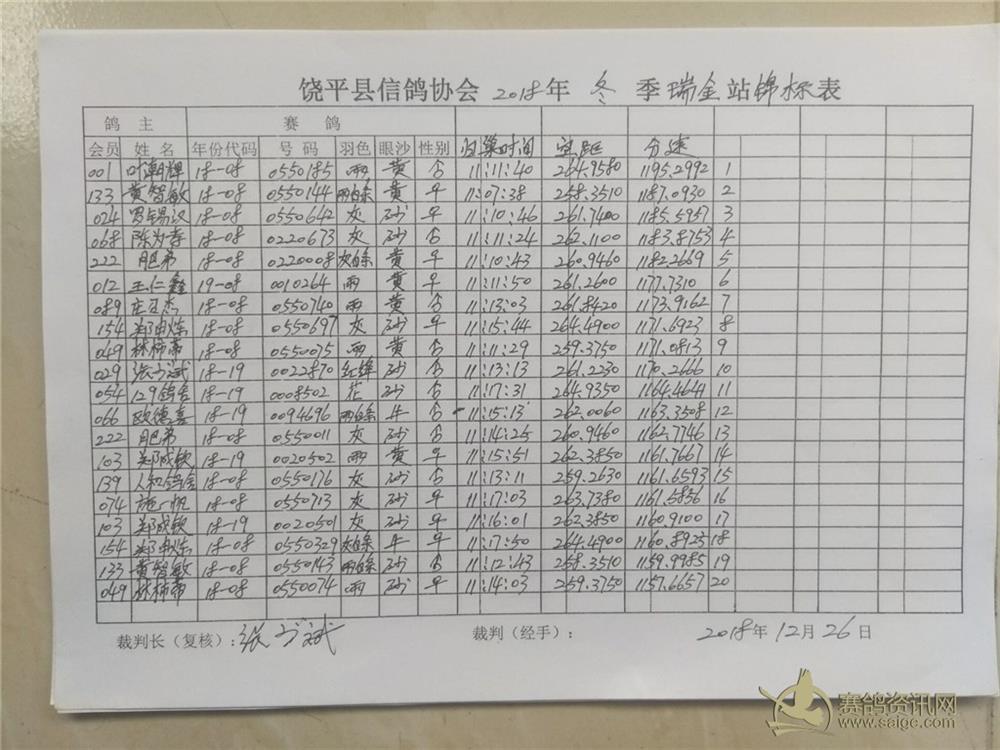 饶平县信鸽协会 2018年 冬 季瑞金站锦标表
鸽 主 赛 鸽
会员 姓 名 年份代码 号 码 羽色 眼沙 性别 归巢时间 空距 分速
001 叶朝辉 18-08 0550185 雨 黄 合 11:11:40 264.9580 1195.2992 1
133 黄智敏 18-08 0550144 雨白条 黄 平 11:07:38 258.3510 1187.0930 2
024 罗锡汉 18-08 0550642 灰 砂 平 11:10:46 261.7400 1185.5957 3
068 陈为孝 18-08 0220673 灰 砂 合 11:11:24 262.1100 1183.8753 4
222 胞弟 18-08 0220008 灰白条 黄 平 11:10:43 260.9460 1182.2669 5
012 王仁鑫 19-08 0010264 雨 黄 平 11:11:50 261.2600 1177.7310 6
089 庄 杰 18-08 0550740 雨 黄 合 11:13:03 261.8420 1173.9162 7
154 郑 炼 18-08 0550697 灰 砂 平 11:15:44 264.4900 1171.6923 8
049 林 18-08 0550075 雨 黄 合 11:11:29 259.3750 1171.0813 9
029 张 斌 18-19 0022870 红绛 砂 合 11:13:13 261.2230 1170.2666 10
054 129鸽舍 18-19 0008502 花 砂 合 11:17:31 264.9350 1164.4641 11
066 欧德嘉 18-19 0094696 雨白条 牛 合 11:15:13 262.0060 1163.3508 12
222 胞弟 18-08 0550011 灰 砂 合 11:14:25 260.9460 1162.7746 13
103 郑成钦 18-19 0020502 雨 黄 平 11:15:51 262.3850 1161.7667 14
139 人和鸽舍 18-08 0550176 灰 砂 合 11:13:11 259.2630 1161.6593 15
074 施一帆 18-08 0550713 灰 砂 平 11:17:03 263.7380 1161.5856 16
103 郑成钦 18-19 0020501 灰 砂 平 11:16:01 262.3850 1160.9100 17
154 郑 炼 18-08 0550329 灰白条 牛 平 11:17:50 264.4900 1160.8925 18
133 黄智敏 18-08 0550143 雨白条 砂 合 11:12:43 258.3510 1159.9985 19
049 林 18-08 0550074 雨 砂 平 11:14:03 259.3750 1157.6657 20
裁判长（复核）：张 斌 裁判（经手）： 2018年 12月 26日
赛鸽资讯网
www.saige.com